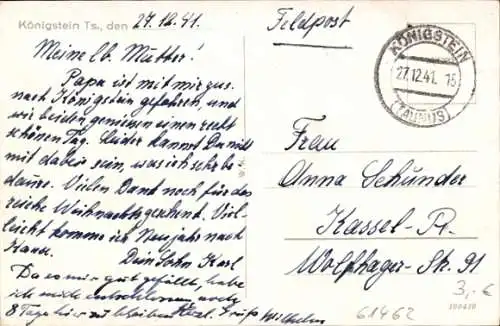 Königstein Ts., den 27.12.41.
Meine lb. Mutter!
Papa ist mit mir zus.
nach Königstein gefahren, und
wir beiden geniessen einen recht
schönen Tag. Leider kannst Du nicht
mit dabei sein, was ich sehr be-
daure. Vielen Dank noch für das
reiche Weihnachtsgeschenk. Viel-
leicht komme ich Neujahr nach
Hause. Dein Sohn Karl
Da es mir gut gefällt, habe
ich mich entschlossen, noch
8 Tage hier zu bleiben Herzl. Grüße Wilhelm
Feldpost
KÖNIGSTEIN
27.12.41. 15
(TAUNUS)
Frau
Anna Schünder
Kassel-R.
Wolfhager-Str. 91
3,- €
61462